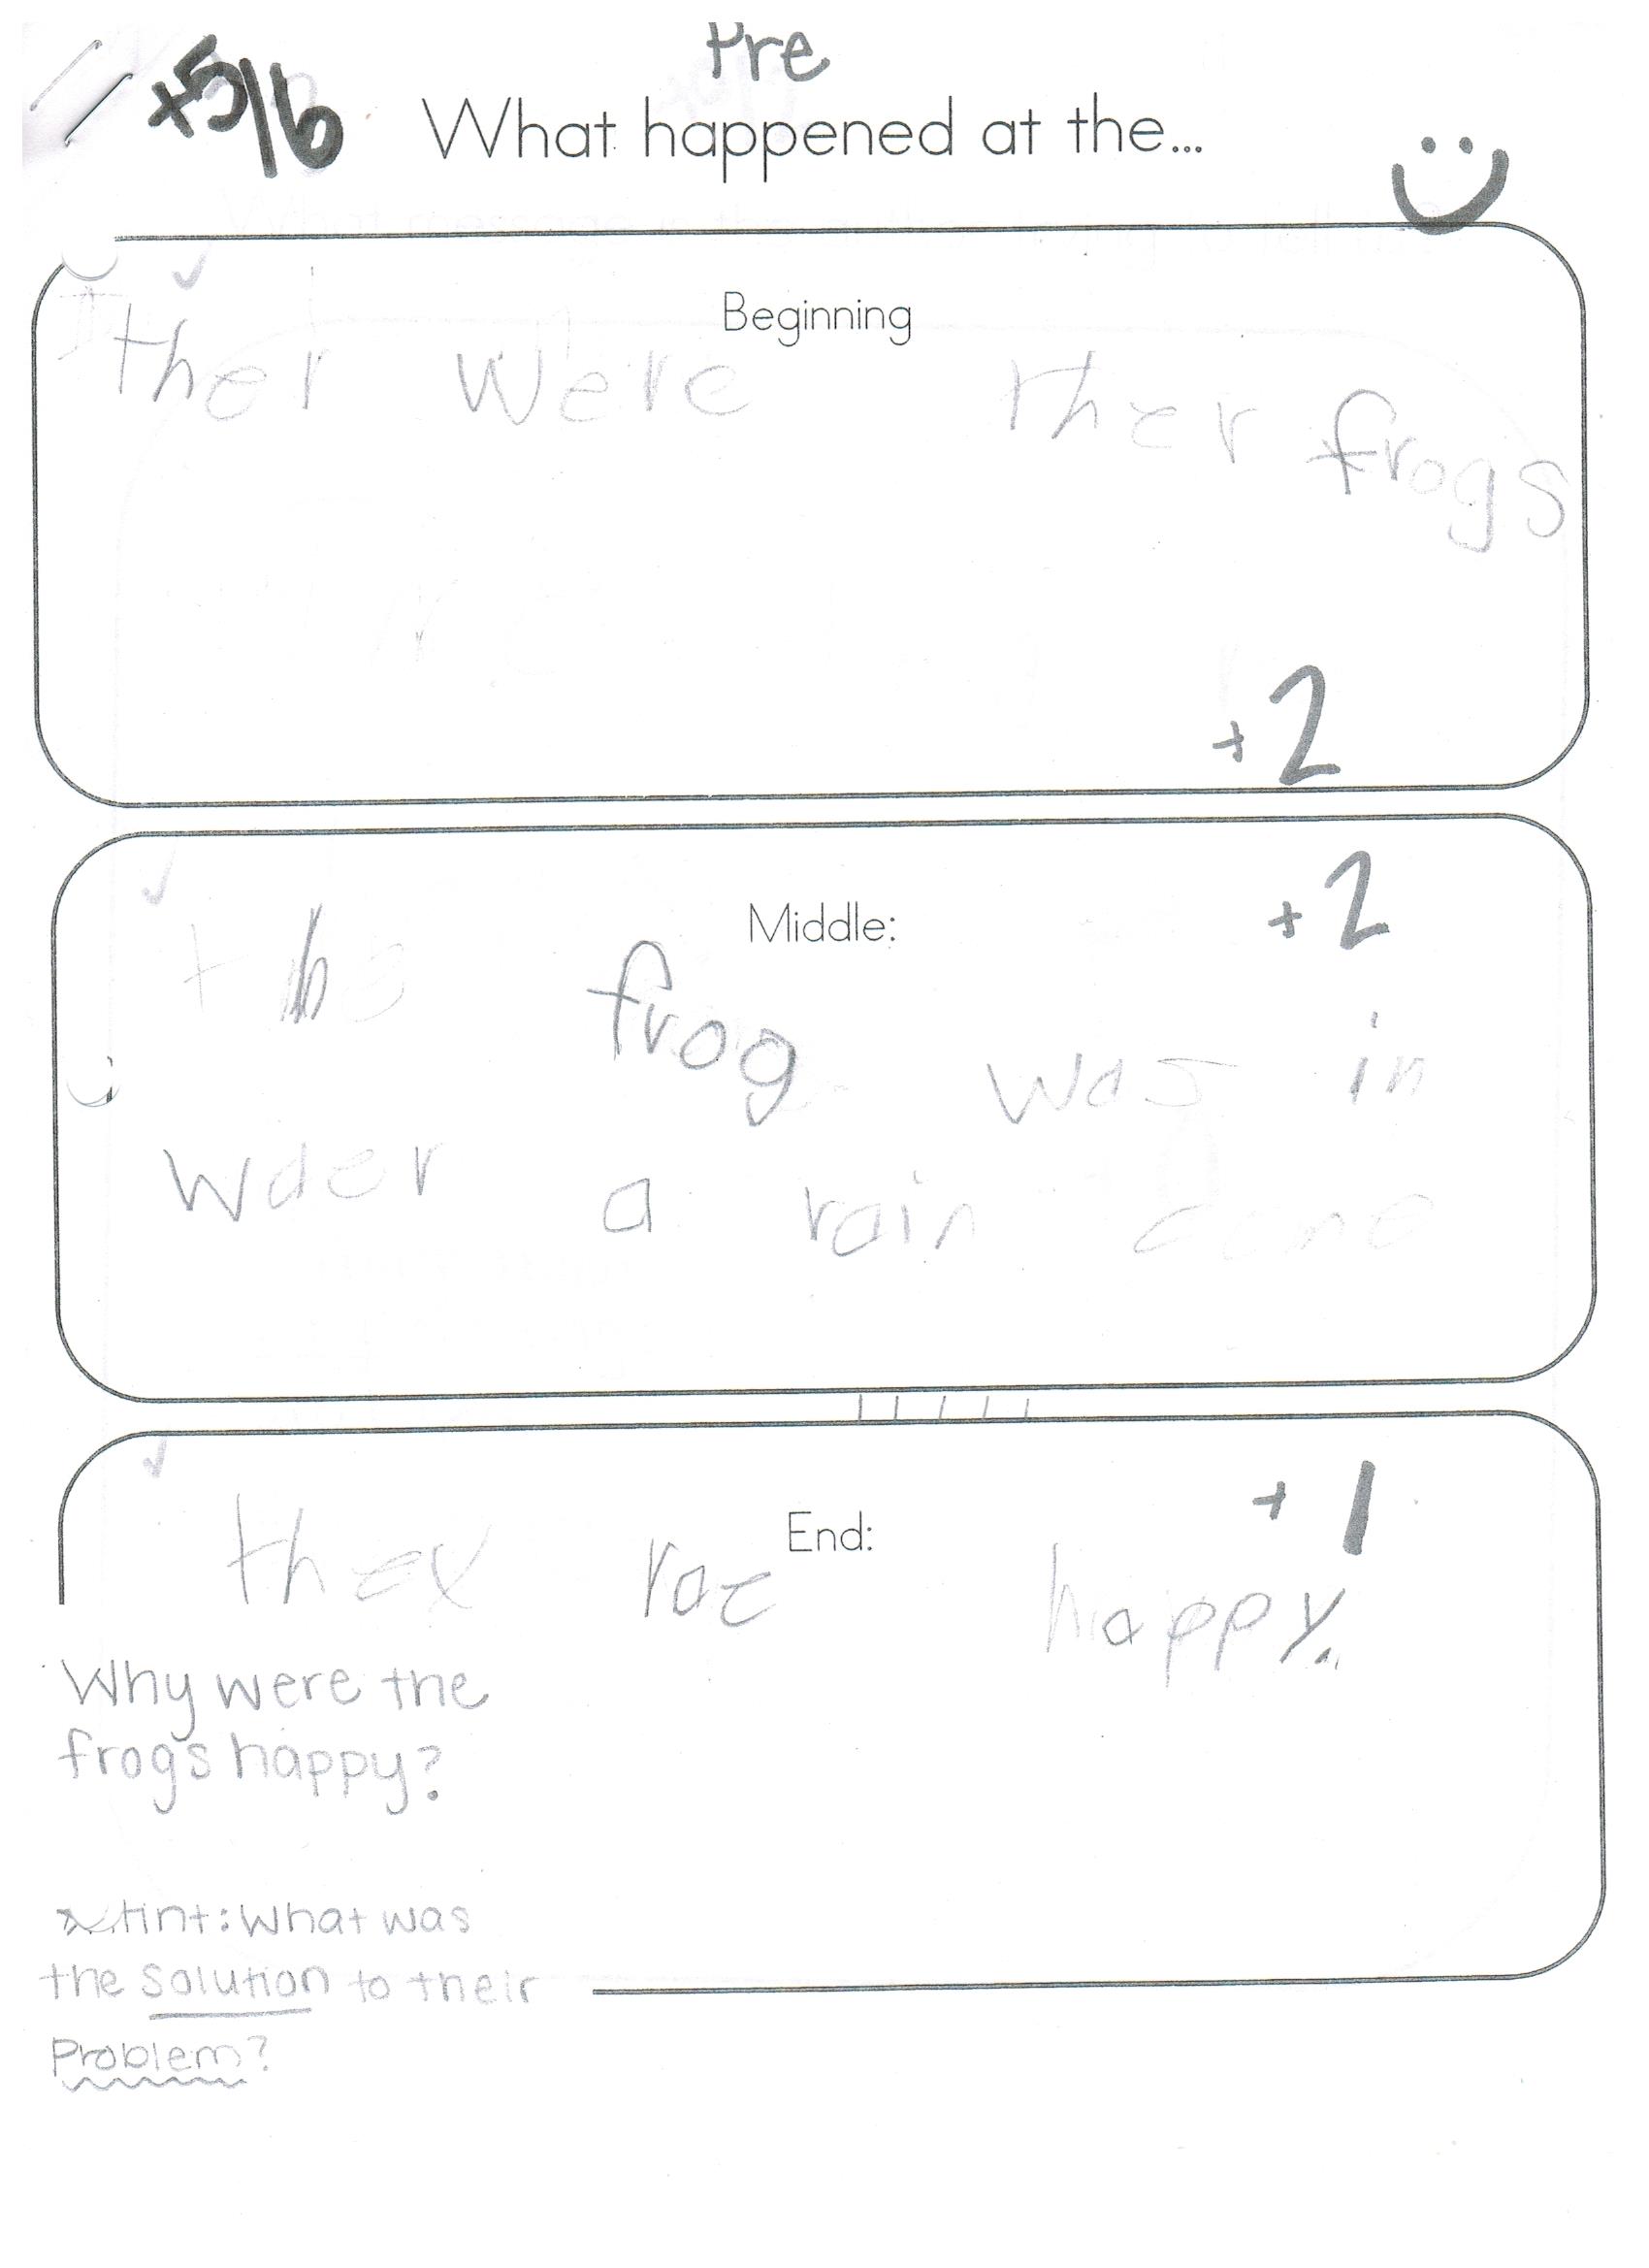 Pre
+5/6 What happened at the...
Beginning
ther were ther frogs
+2
Middle:
+2
the frog was in
wder a rain came
End:
+1
they rae happy.
Why were the
frogs happy?
*Hint: What was
the solution to their
Problem?